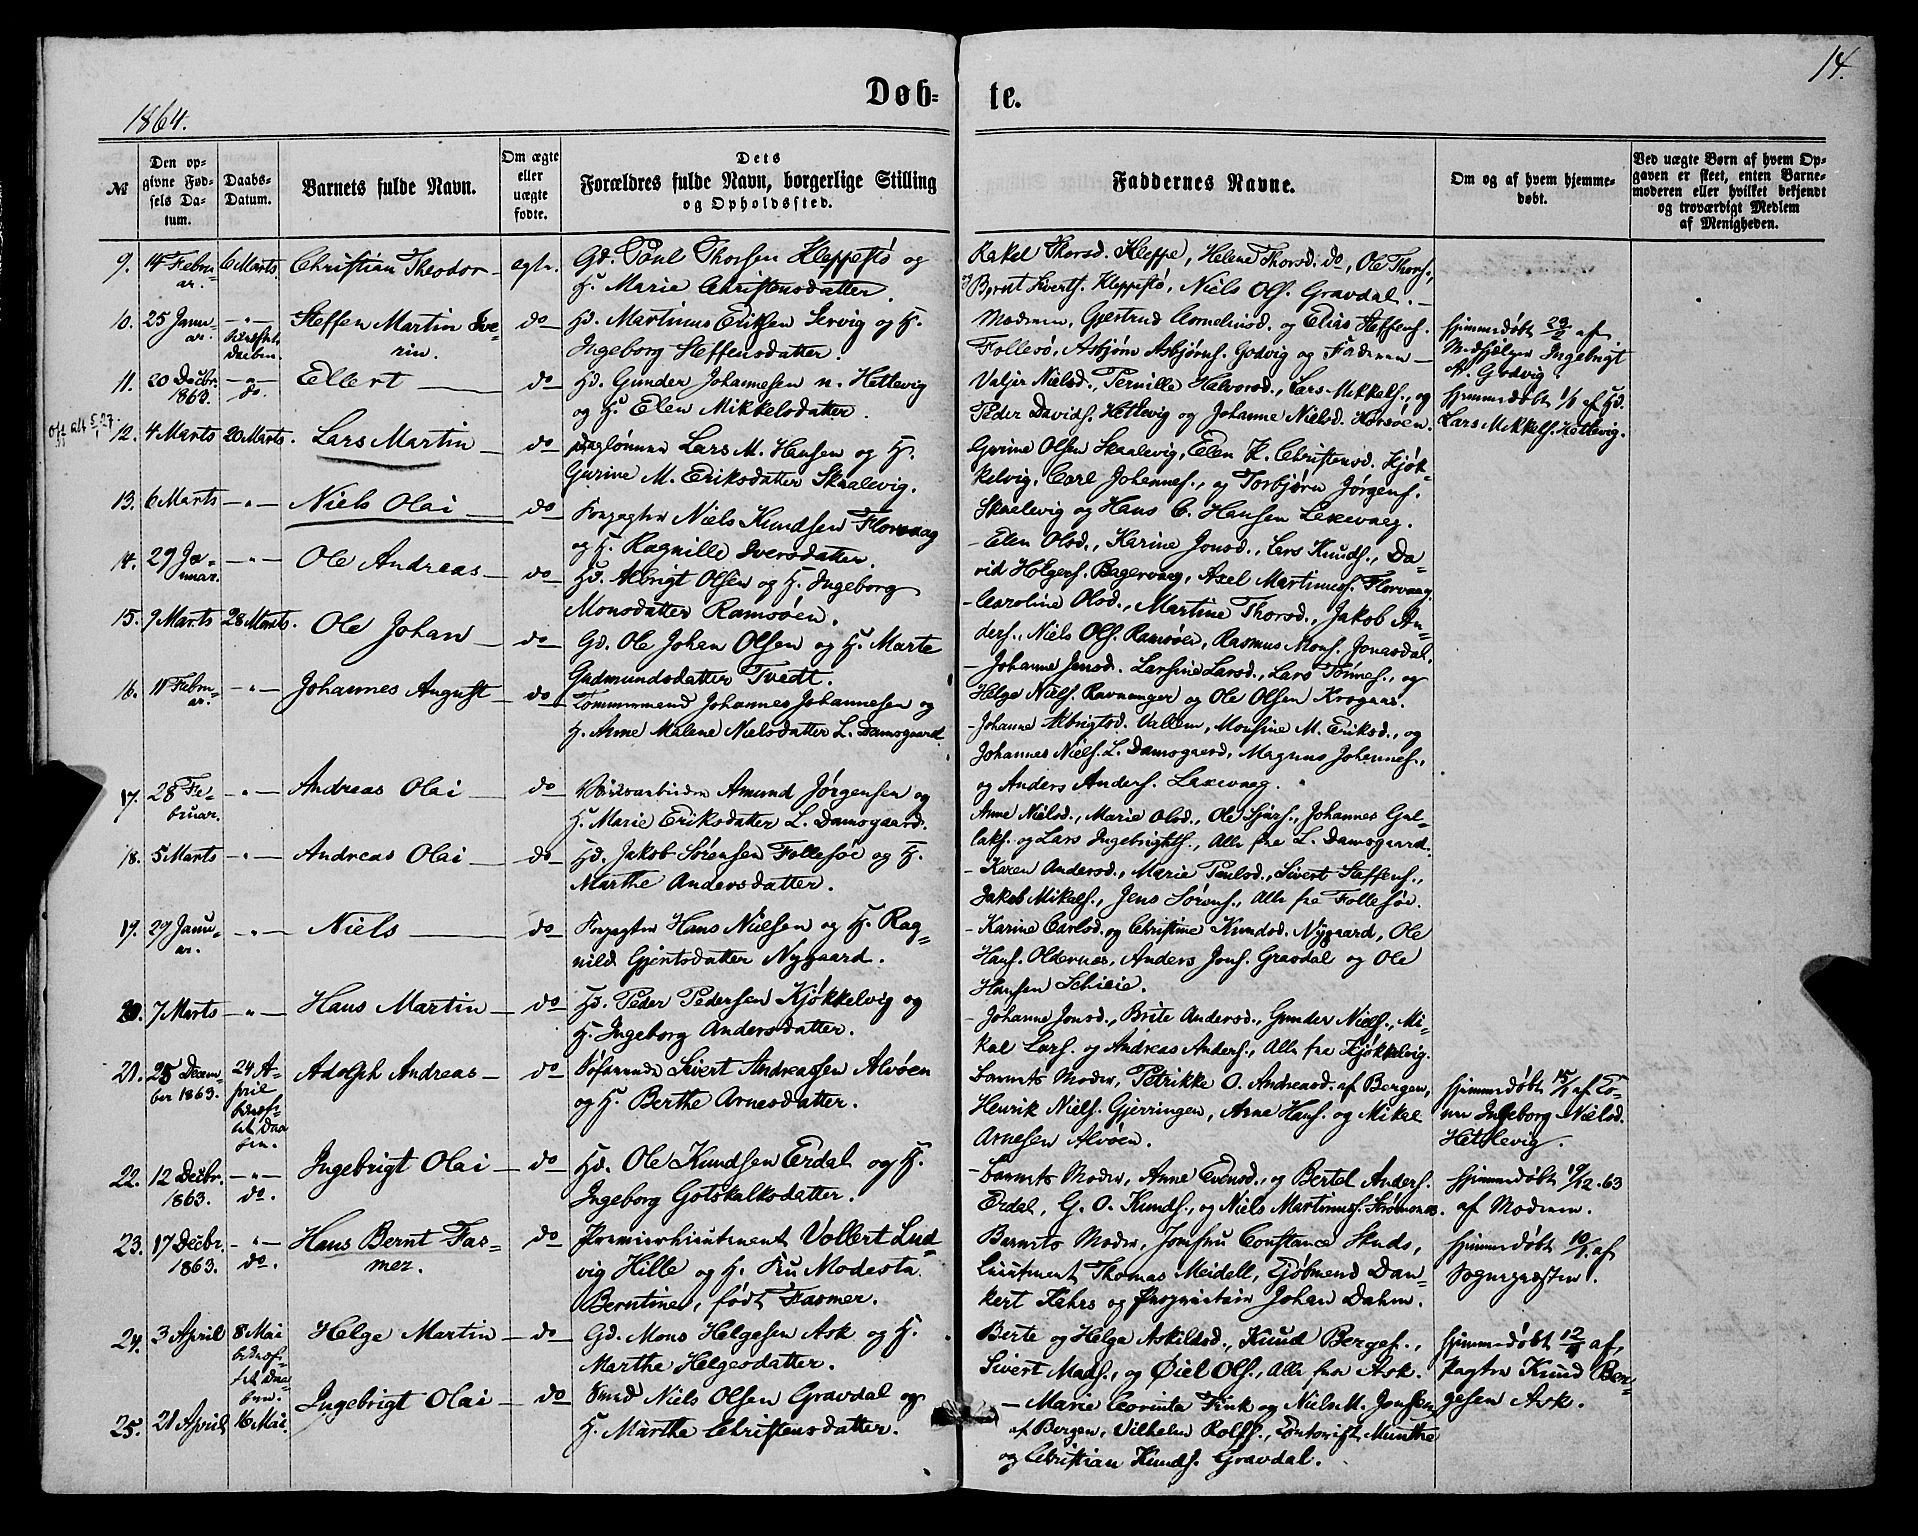 14.
Døb-
te.
1864.
№
Den op-
givne Fød-
sels Da-
tum.
Daabs-
Datum.
Barnets fulde Navn.
Om ægte
eller
uægte
fødte.
Dets
Forældres fulde Navn, borgerlige Stilling
og Opholdssted.
Faddernes Navne.
Om og af hvem hjemme-
døbt.
Ved uægte Børn af hvem Op-
gaven er skeet, enten Barne-
moderen eller hvilket bekjendt
og troværdigt Medlem
af Menigheden.
9. 14 Febru-
ar. 6 Marts. Christian Theodor — egte. Gd. Poul Thorsen Kleppestø og
H. Marie Christensdatter.
Rakel Thorsd. Kleppe, Helene Thorsd. do, Ole Thors.,
Bernt Siverts. Kleppestø, Niels Ols. Gravdal. —
10. 25 Janu-
ar. —"— Steffen Martin Se-
rin. do Hd. Martinus Eriksen Servig og H.
Ingeborg Steffensdatter.
Moderen, Gjertrud Cornelius d. og Elias Steffens.
Follesø, Asbjørn Asbjørns. Godvig og Faderen —
Hjemmedøbt 29/2 af
Medhjælper Ingebrigt
A. Godvig.
11. 20 Decbr.
1863. —"—
do. Ellert — do Hd. Gunder Johannesen n. Hettevig
og H. Elen Mikkelsdatter.
Valjer Nielsd., Pernille Halvorsd., Lars Mikkels., og
Peder Davids. Hetlevig og Johanne Nielsd. Korsøen.
Hjemmedøbt 1/1 af Hd.
Lars Mikkels. Hetlevig.
12. 4 Marts 20 Marts. Lars Martin — do Daglønner Lars M. Hansen og H.
Gurine M. Eriksdatter Skaalevig.
Gurine Olsen Skaalevig, Elen K. Christensd. Kjøk-
kelvig, Carl Johannes., og Torbjørn Jørgens.
Skaalevig og Hans C. Hansen Laxevaag.
13. 6 Marts —"— Niels Olai — do Forpagter Niels Knudsen Florvaag
og H. Ragnille Iversdatter.
— Elen Olsd., Karine Jonsd., Lars Knuds., Da-
vid Holgers. Bagervaag, Axel Martinus. Florvaag
14. 29 Ja-
nuar. —"— Ole Andreas — do Hd. Albrigt Olsen og H. Ingeborg
Monsdatter Ramsøen.
— Caroline Olsd., Martine Thorsd., Jakob An-
ders., Niels Ols. Ramsøen, Rasmus Mons. Jonasdal.
15. 9 Marts 28 Marts. Ole Johan — do Gd. Ole Johan Olsen og H. Marte
Gudmundsdatter Tvedt.
— Johanne Jensd. Larsine Larsd., Lars Tønnes., og
Helge Niels. Ravnanger og Ole Olsen Krogaas.
16. 11 Febru-
ar. —"— Johannes August — do Tømmermand Johannes Johannesen og
H. Anne Malene Nielsdatter L. Damsgaard.
— Johanne Albrigtsd. Vallem, Monsine M. Eriksd., og
Johannes Niels. L. Damsgaard, Magnus Johannes.,
og Anders Anders. Laxevaag.
17. 28 Fe-
bruar. —"— Andreas Olai — do Værksarbeider Amund Jørgensen og
H. Marie Eriksdatter L. Damsgaard.
Anne Nielsd., Marie Olsd., Ole Sjurs., Johannes Gul-
laks. og Lars Ingebrigts., Alle fra L. Damsgaard.
18. 5 Marts —"— Andreas Olai — do Hd. Jakob Sørensen Follesøe og H.
Marthe Andersdatter.
— Karen Andersd., Marie Poulsd., Sivert Steffens.,
Jakob Mikals., Jens Sørens., Alle fra Follesøe.
19. 29 Janu-
ar. —"— Niels — do Forpagter Hans Nielsen og H. Rag-
nild Gjertsdatter Nygaard.
— Karine Carlsd. og Christine Knudsd. Nygaard, Ole
Hans. Oldernes, Anders Jons. Gravdal og Ole
Hansen Schieie.
20. 7 Marts —"— Hans Martin — do Hd. Peder Pedersen Kjøkkelvig og
H. Ingeborg Andersdatter.
— Johanne Jonsd., Brite Andersd., Gunder Niels., Mi-
kal Lars. og Andreas Anders., Alle fra Kjøkkelvig.
21. 25 Decem-
ber 1863. 24 A-
pril
bekræf-
tet Daa-
ben. Adolph Andreas — do Søfarende Sivert Andreassen Alvøen
og H. Berthe Arnesdatter.
Barnets Moder, Petrikke O. Andreasd. af Bergen,
Henrik Niels. Gjerringen, Arne Hans. og Mikal
Arnesen Alvøen.
Hjemmedøbt 15/1 af Ko-
nen Ingeborg Nielsd.
Hetlevig.
22. 12 Decbr.
1863. —"—
do. Ingebrigt Olai — do Hd. Ole Knudsen Erdal og H.
Ingeborg Gotskalksdatter.
— Barnets Moder, Anne Evensd., og Bertel Anders.
Erdal, G. O. Knuds., og Niels Martinus. Strømsnes.
Hjemmedøbt 19/12 63
af Moderen.
23. 17 Decbr.
1863. —"—
do. Hans Bernt Fas-
mer. do Premierlieutenant Vollert Lud-
vig Hille og H. Fru Modesta
Berntines, født Fasmer.
Barnets Moder, Jomfru Constance Skuds,
Lieutenant Thomas Meidell, Kjøbmand Dan-
kert Kahrs og Proprietair Johan Dahm.
Hjemmedøbt 10/1. af
Sognepræsten.
24. 3 April 8 Mai
bekræf-
tet Daa-
ben. Helge Martin — do Gd. Mons Helgesen Ask og H.
Marthe Helgesdatter.
Berte og Helga Askildsd., Knud Berges.,
Sivert Mads., og Øiel Ols., Alle fra Ask.
Hjemmedøbt 12/4 af,
Pagter Knud Ber-
gesen Ask.
25. 21 April 16 Mai. Ingebrigt Olai — do Smed Niels Olsen Gravdal og
H. Marthe Christensdatter.
— Marie Corinta Fink og Niels M. Jonsen
af Bergen, Vilhelm Rolfs., Contorist Munthe
og Christian Knuds. Gravdal.